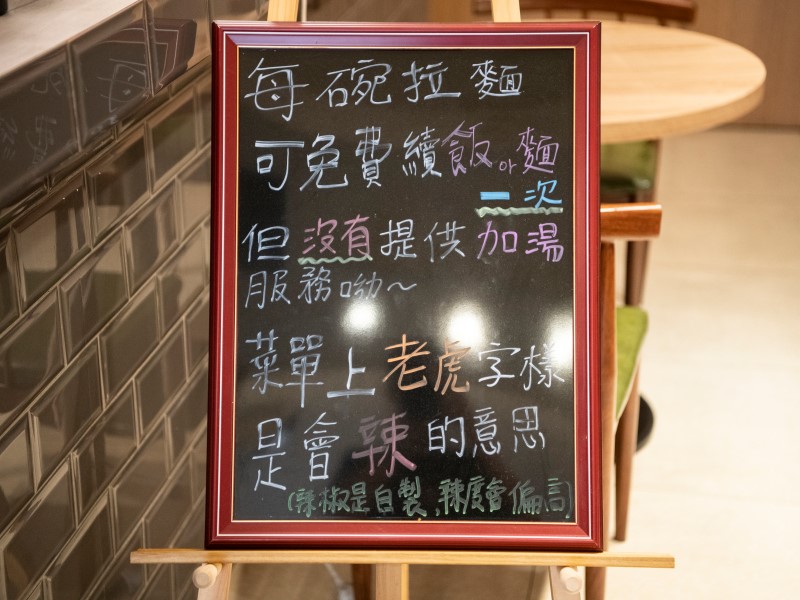 每碗拉麵
可免費續飯or麵
一次
但沒有提供加湯
服務呦～
菜單上老虎字樣
是會辣的意思
(辣椒是自製，辣度會偏高)